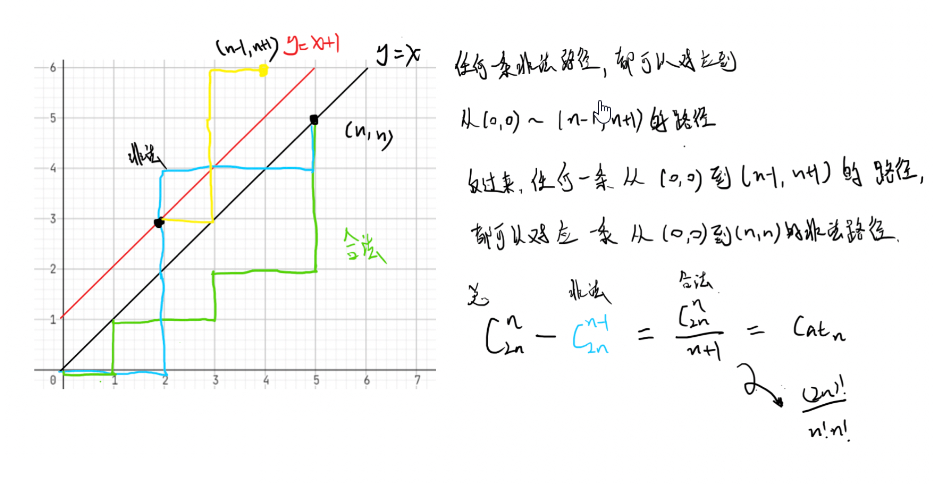 (n-1,n+1) y=x+1
y=x
(n,n)
非法
合法
6
5
4
3
2
1
0 1 2 3 4 5 6 7
任何一条非法路径，都可以对应到
从(0,0) ~ (n-1,n+1)的路径
反过来，任何一条从(0,0)到(n-1,n+1)的路径，
都可以对应一条从(0,0)到(n,n)的非法路径.
总 非法 合法
C_{2n}^{n} - C_{2n}^{n-1} = \frac{C_{2n}^{n}}{n+1} = Cat_n
\frac{(2n)!}{n!n!}